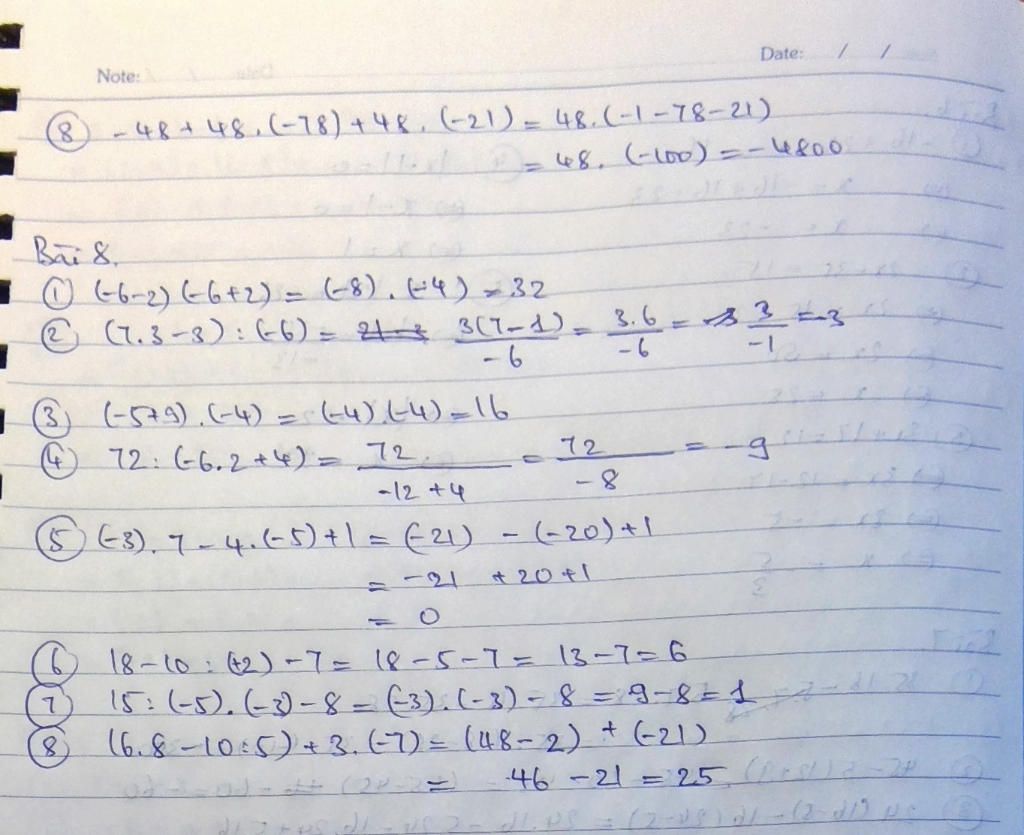 Note:
Date: / /
⑧ -48 + 48.(-78) + 48.(-21) = 48.(-1-78-21)
= 48. (-100) = -4800
Bài 8.
① (-6-2)(-6+2) = (-8).(-4) = 32
② (7.3-3):(-6) = 3(7-1)/-6 = 3.6/-6 = 3/-1 = -3
③ (-5+9).(-4) = (-4).(-4) = 16
④ 72:(-6.2+4) = 72/-12+4 = 72/-8 = -9
⑤ (-3).7-4.(-5)+1 = (-21) - (-20)+1
= -21 +20+1
= 0
⑥ 18-10:(+2)-7 = 18-5-7 = 13-7=6
⑦ 15:(-5).(-3)-8 = (-3).(-3)-8 = 9-8=1
⑧ (6.8-10:5)+3.(-7) = (48-2) + (-21)
= 46 -21 = 25